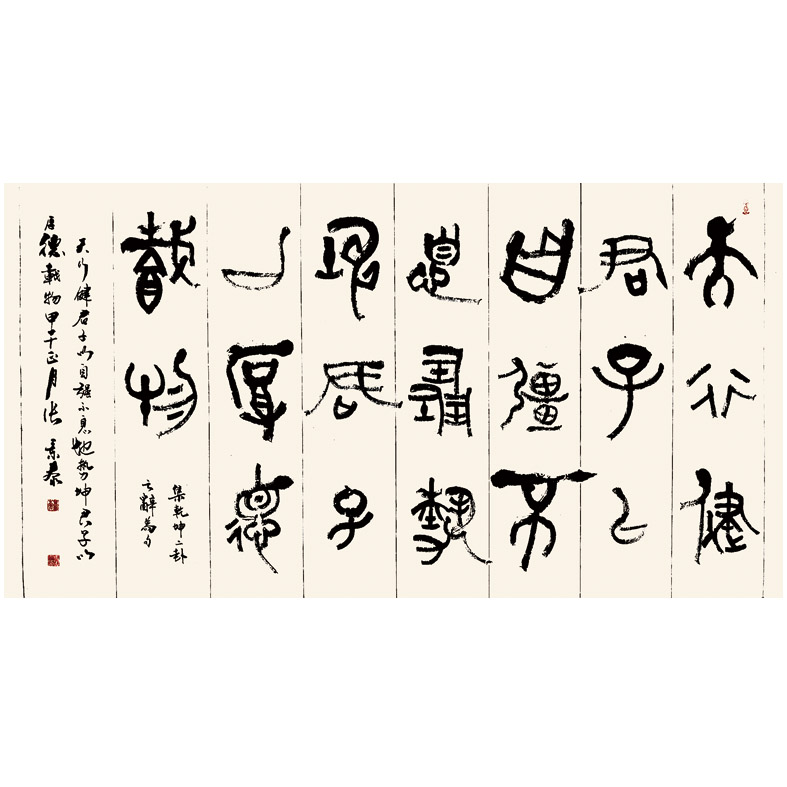 天行健
君子以
自彊不
息地勢
坤君子
以厚德
載物
集乾坤二卦
之辭為句
天行健君子以自彊不息地勢坤君子以
厚德載物甲午正月張景泰